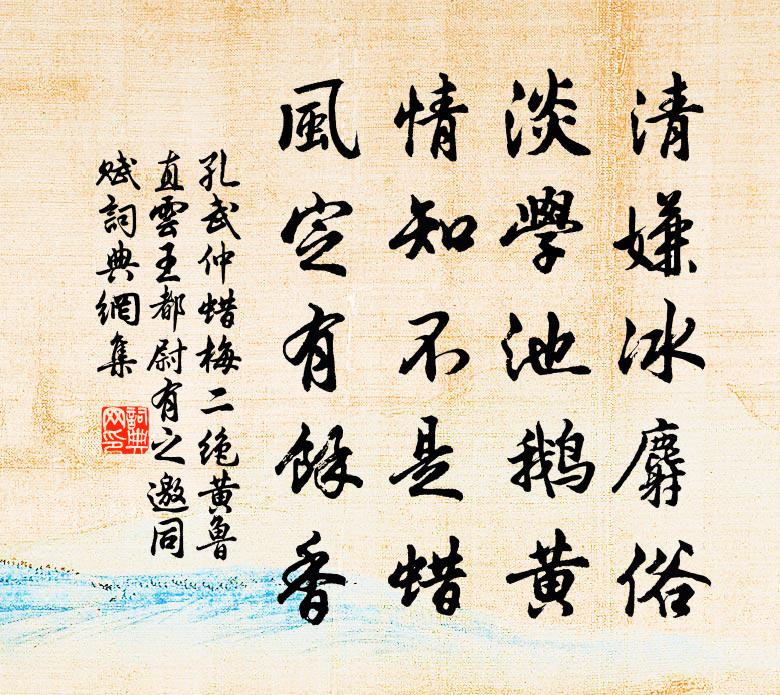 清嫌冰麝俗
淡學池鹅黄
情知不是蜡
風定有餘香
孔武仲蜡梅二绝黄魯
直雲王都尉有之邀同
赋詞典網集
詞典
网印